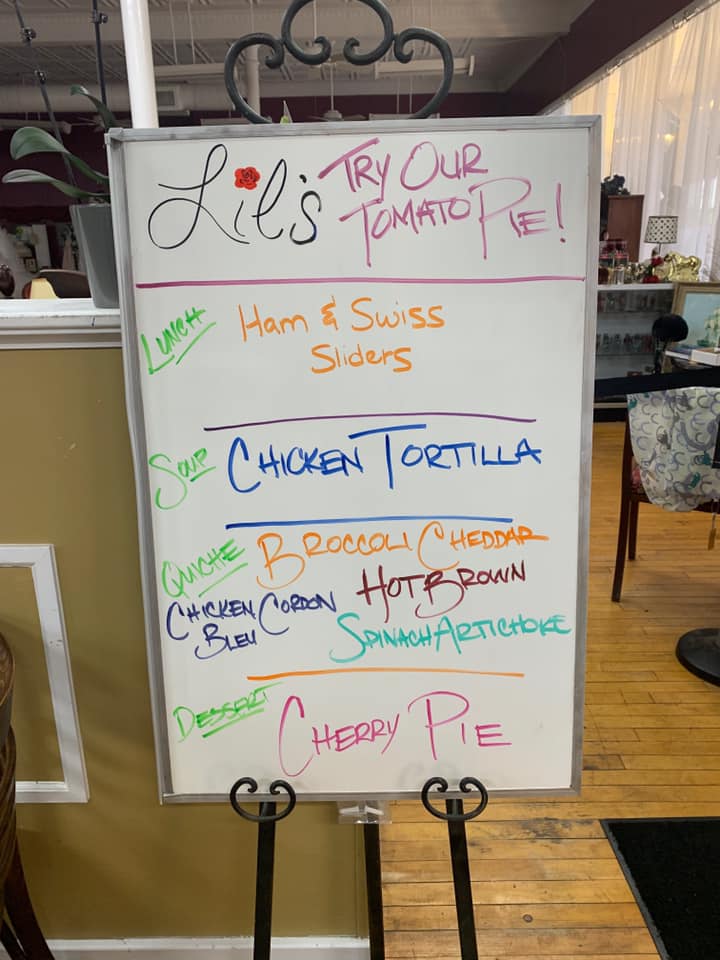 Lil's
Try Our
Tomato Pie!
Lunch
Ham & Swiss
Sliders
Soup
Chicken Tortilla
Quiche
Broccoli Cheddar
Chicken Cordon
Bleu
Hot Brown
Spinach Artichoke
Dessert
Cherry Pie